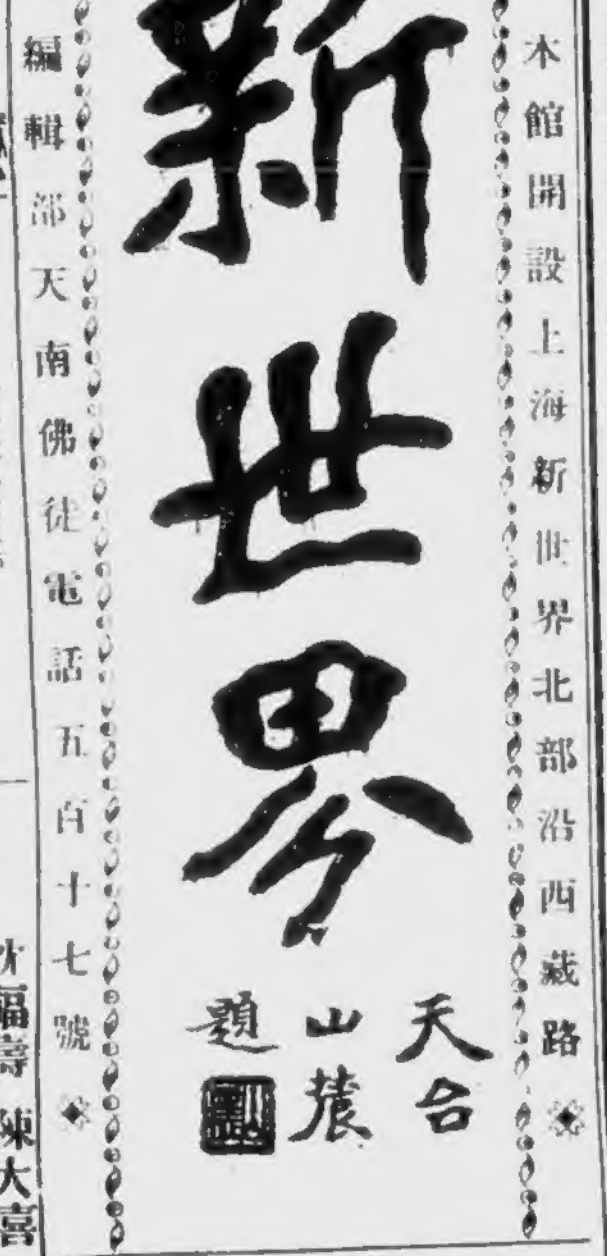 本館開設上海新世界北部沿西藏路
新世界
天台
山農
題
編輯部天南佛徒電話五百十七號
福壽 陳大喜